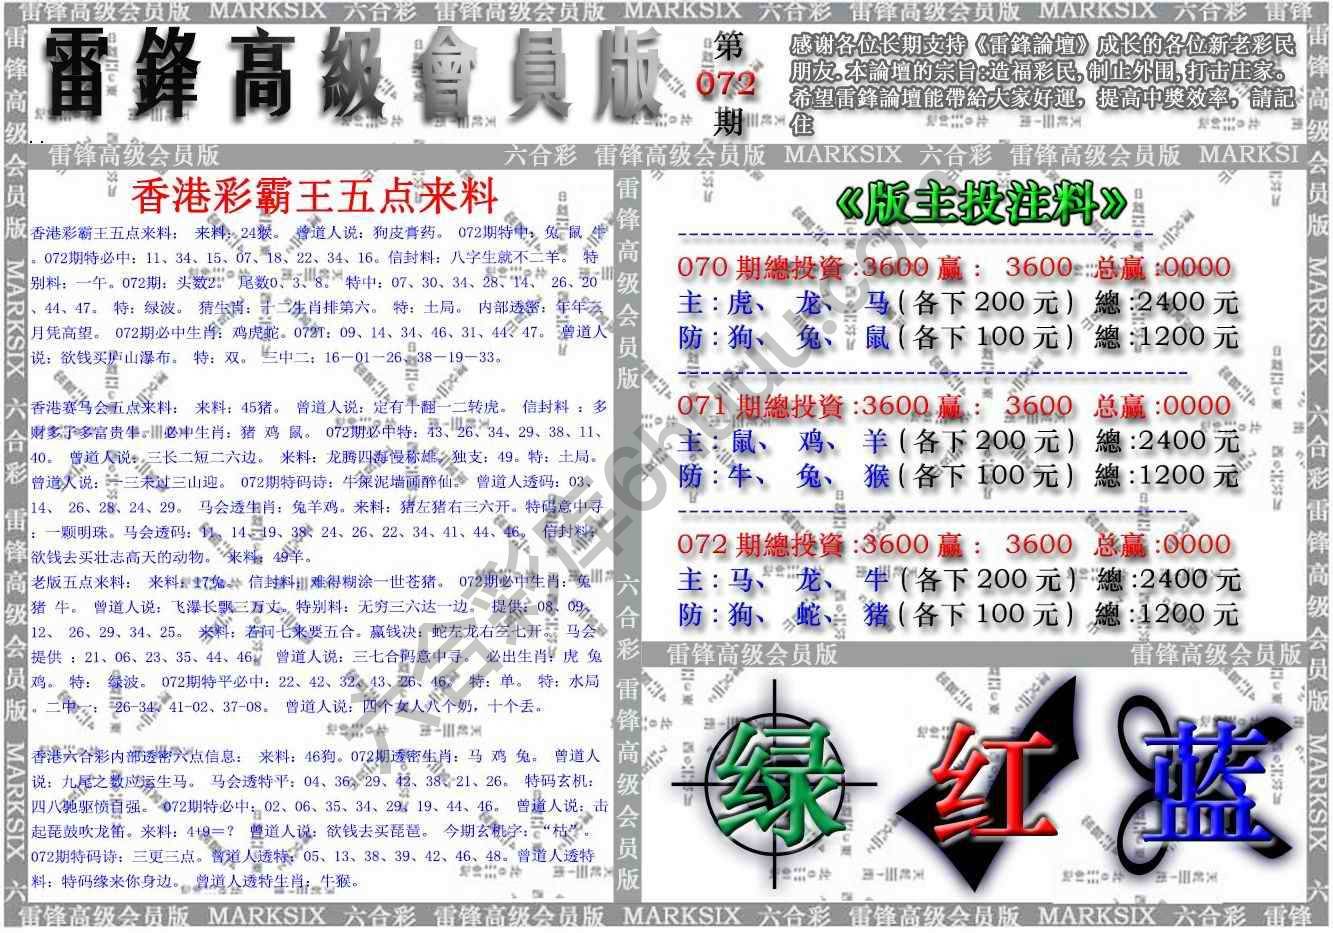 雷锋高级会员版 MARKSIX 六合彩 雷锋高级会员版 MARKSIX 六合彩 雷锋高级会员版 MARKSIX 六合彩 雷锋
雷鋒高級會員版
第
072
期
感谢各位长期支持《雷鋒論壇》成长的各位新老彩民
朋友.本論壇的宗旨:造福彩民,制止外围,打击庄家。
希望雷鋒論壇能帶給大家好運，提高中獎效率，請記
住
雷锋高级会员版 六合彩 雷锋高级会员版 MARKSIX 六合彩 雷锋高级会员版 MARKSI
香港彩霸王五点来料
香港彩霸王五点来料； 来料：24猴。 曾道人说：狗皮膏药。 072期特中：兔 鼠 牛
。072期特必中：11、34、15、07、18、22、34、16。信封料：八字生就不二羊。 特
别料：一午。072期：头数2。 尾数0、3、8。 特中：07、30、34、28、14、 26、20
、44、47。 特：绿波。 猜生肖：十二生肖排第六。 特：土局。 内部透密：年年三
月凭高望。 072期必中生肖：鸡虎蛇。072T；09、14、34、46、31、44、47。 曾道人
说：欲钱买庐山瀑布。 特：双。 三中二；16－01－26、38－19－33。
香港赛马会五点来料： 来料：45猪。 曾道人说：定有十翻一二转虎。 信封料 ：多
财多子多富贵牛。 必中生肖：猪 鸡 鼠。 072期必中特：43、26、34、29、38、11、
40。 曾道人说：三长二短二六边。 来料：龙腾四海慢称雄。独支：49。特：土局。
曾道人说：一三未过三山迎。 072期特码诗：牛屎泥墙画醉仙。 曾道人透码：03、
14、 26、28、24、29。 马会透生肖：兔羊鸡。来料：猪左猪右三六开。特码意中寻
：一颗明珠。马会透码：11、14、19、38、24、26、22、34、41、44、46。 信封料：
欲钱去买壮志高天的动物。 来料：49羊。
老版五点来料： 来料：17兔。 信封料：难得糊涂一世苍猪。 072期必中生肖：兔
猪 牛。 曾道人说：飞瀑长飘三万丈。特别料：无穷三六达一边。 提供：08、09、
12、 26、29、34、25。 来料：若问七来要五合。赢钱决：蛇左龙右三七开。 马会
提供 ：21、06、23、35、44、46。 曾道人说：三七合码意中寻。 必出生肖：虎 兔
鸡。 特： 绿波。 072期特平必中：22、42、32、43、26、46。 特：单。 特：水局
。二中一； 26-34、41-02、37-08。 曾道人说：四个女人八个奶，十个丢。
香港六合彩内部透密六点信息： 来料：46狗。072期透密生肖：马 鸡 兔。 曾道人
说：九尾之数应运生马。 马会透特平：04、36、29、42、38、21、26。 特码玄机：
四八驰驱愤自强。 072期特必中：02、06、35、34、29、19、44、46。 曾道人说：击
起琵鼓吹龙笛。来料：4+9＝？ 曾道人说：欲钱去买琵琶。 今期玄机字：“枯”。
072期特码诗：三更三点。曾道人透特：05、13、38、39、42、46、48。曾道人透特
料：特码缘来你身边。 曾道人透特生肖：牛猴。
《版主投注料》
070 期總投資:3600 赢： 3600 总赢:0000
主:虎、 龙、 马(各下 200 元) 總:2400 元
防:狗、 兔、 鼠(各下 100 元) 總:1200 元
071 期總投資:3600 赢： 3600 总赢:0000
主:鼠、 鸡、 羊(各下 200 元) 總:2400 元
防:牛、 兔、 猴(各下 100 元) 總:1200 元
072 期總投資:3600 赢： 3600 总赢:0000
主:马、 龙、 牛(各下 200 元) 總:2400 元
防:狗、 蛇、 猪(各下 100 元) 總:1200 元
雷锋高级会员版 雷锋高级会员版
绿 红 蓝
雷锋高级会员版 MARKSIX 六合彩 雷锋高级会员版 MARKSIX 六合彩 雷锋高级会员版 MARKSIX 六合彩 雷锋